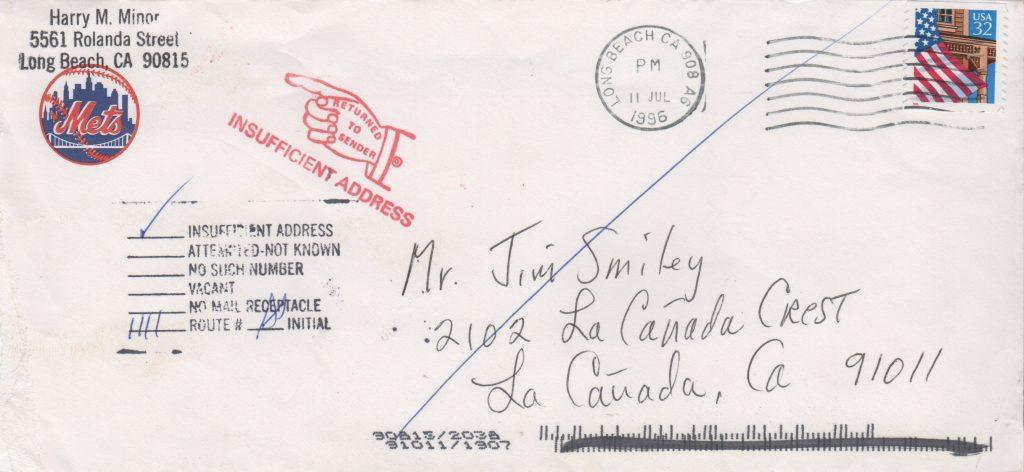 Harry M. Minor
5561 Rolanda Street
Long Beach, CA 90815
Mets
RETURNED
TO
SENDER
INSUFFICIENT ADDRESS
LONG BEACH CA 908 A6
PM
11 JUL
1996
USA
32
INSUFFICIENT ADDRESS
ATTEMPTED-NOT KNOWN
NO SUCH NUMBER
VACANT
NO MAIL RECEPTACLE
ROUTE # INITIAL
Mr. Jim Smiley
2102 La Cañada Crest
La Cañada, Ca 91011
90815/2038
91011/1907